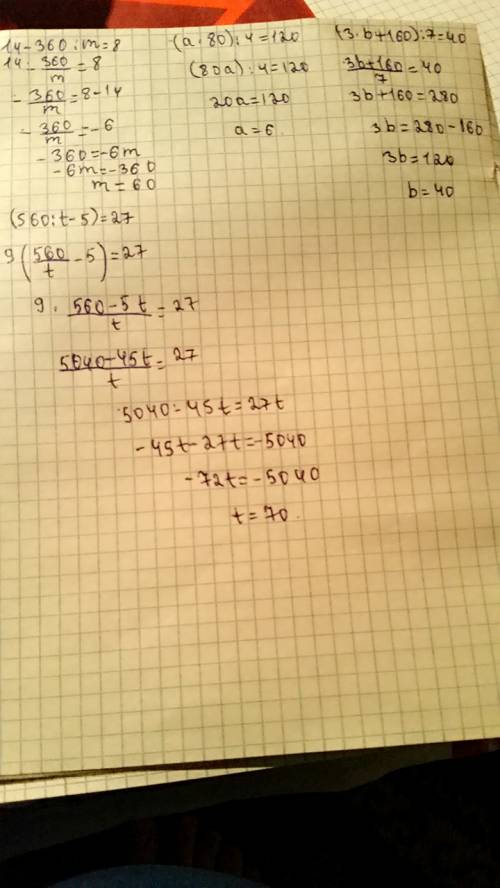 14-360:m=8
14-360/m=8
-360/m=8-14
-360/m=-6
-360=-6m
-6m=-360
m=60
(a·80):4=120
(80a):4=120
20a=120
a=6
(3·b+160):7=40
3b+160/7=40
3b+160=280
3b=280-160
3b=120
b=40
(560:t-5)=27
9(560/t-5)=27
9·560-5t/t=27
5040-45t/t=27
5040-45t=27t
-45t-27t=-5040
-72t=-5040
t=70